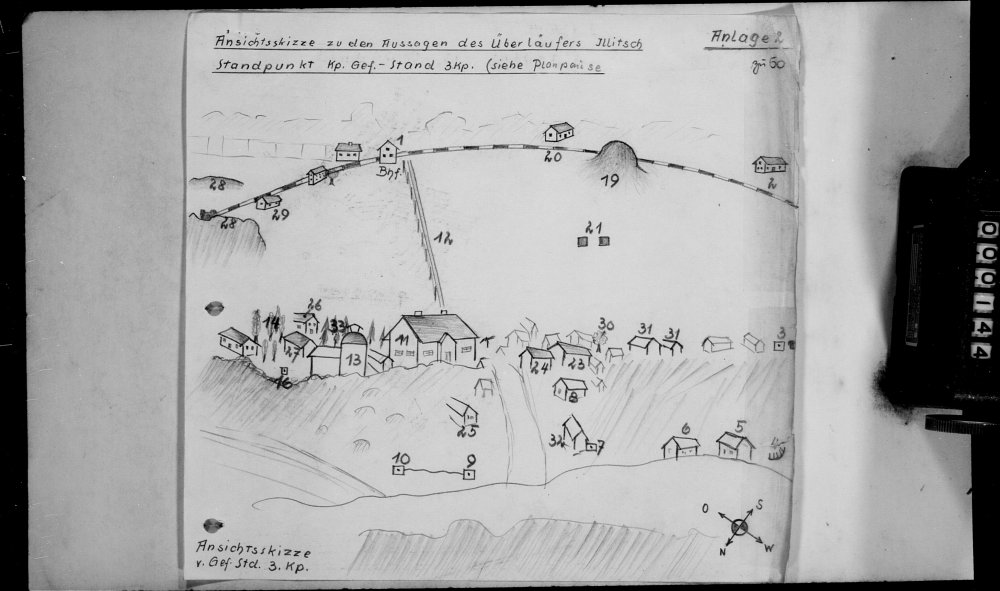 Ansichtsskizze zu den Aussagen des Überläufers Illitsch
Standpunkt Kp. Gef.-Stand 3Kp. (siehe Planpause
Anlage 2
zu 50
1
Bhf.
20
19
2
28
29
28
12
21
26
14
33
27
11
13
16
30
31
31
3
24
23
8
25
32
7
6
5
10
9
O
S
N
W
Ansichtsskizze
v. Gef. Std. 3. Kp.
000144